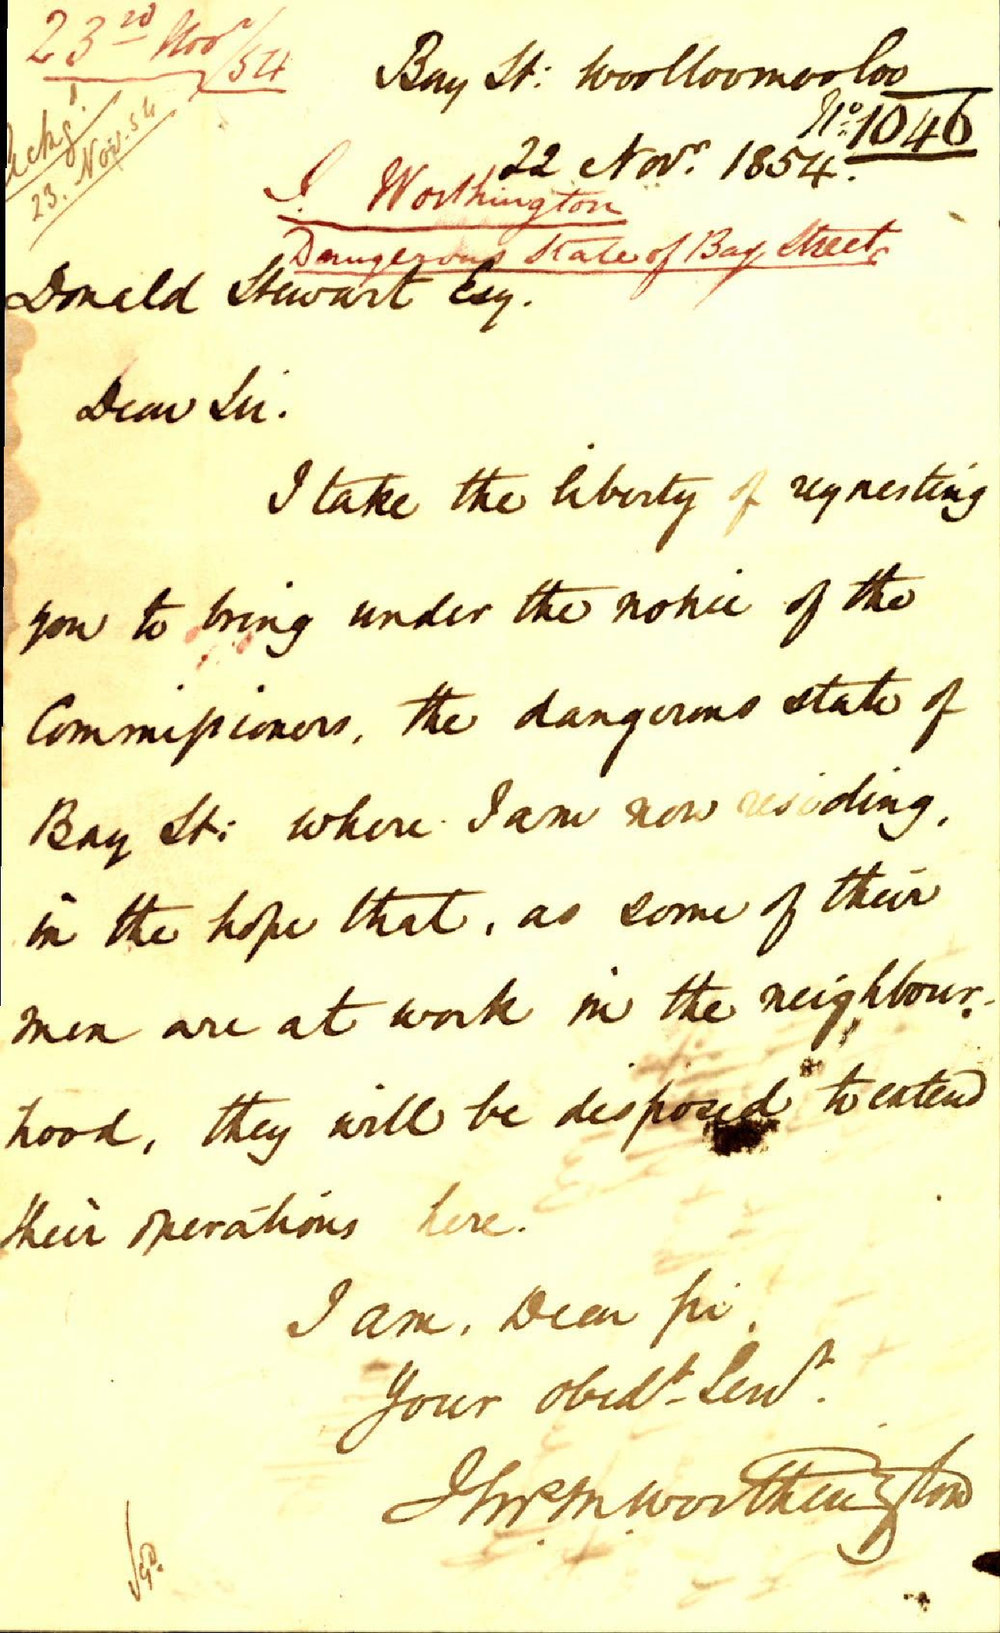 23rd Novr/54
Bay St: Woolloomooloo
No: 1046
Ackgd.
23. Nov. 54
22 Novr. 1854.
J. Worthington
Dangerous State of Bay Street
Donald Stewart Esq.
Dear Sir.
I take the liberty of requesting
you to bring under the notice of the
Commissioners, the dangerous state of
Bay St: where I am now residing,
in the hope that, as some of their
men are at work in the neighbour-
hood, they will be disposed to extend
their operations here.
I am, Dear Sir,
Your obedt. Servt.
Worthington